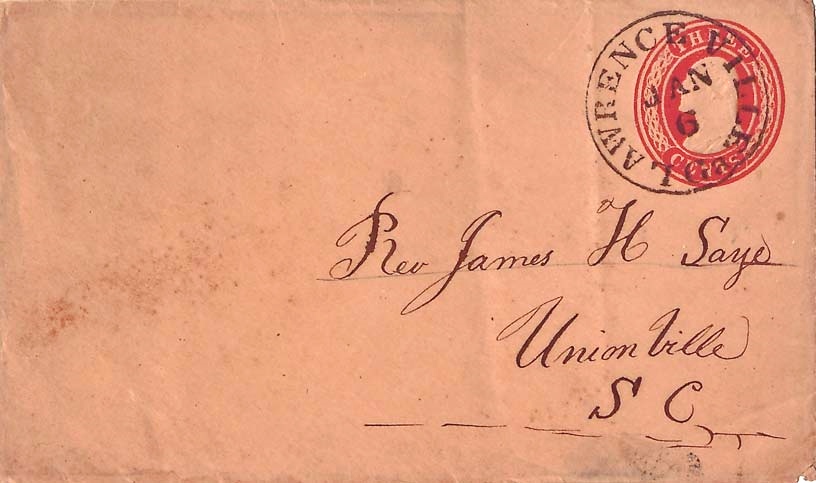 LAWRENCEVILLE
JAN
6
THREE
CENTS
Rev James H Saye
Unionville
S C